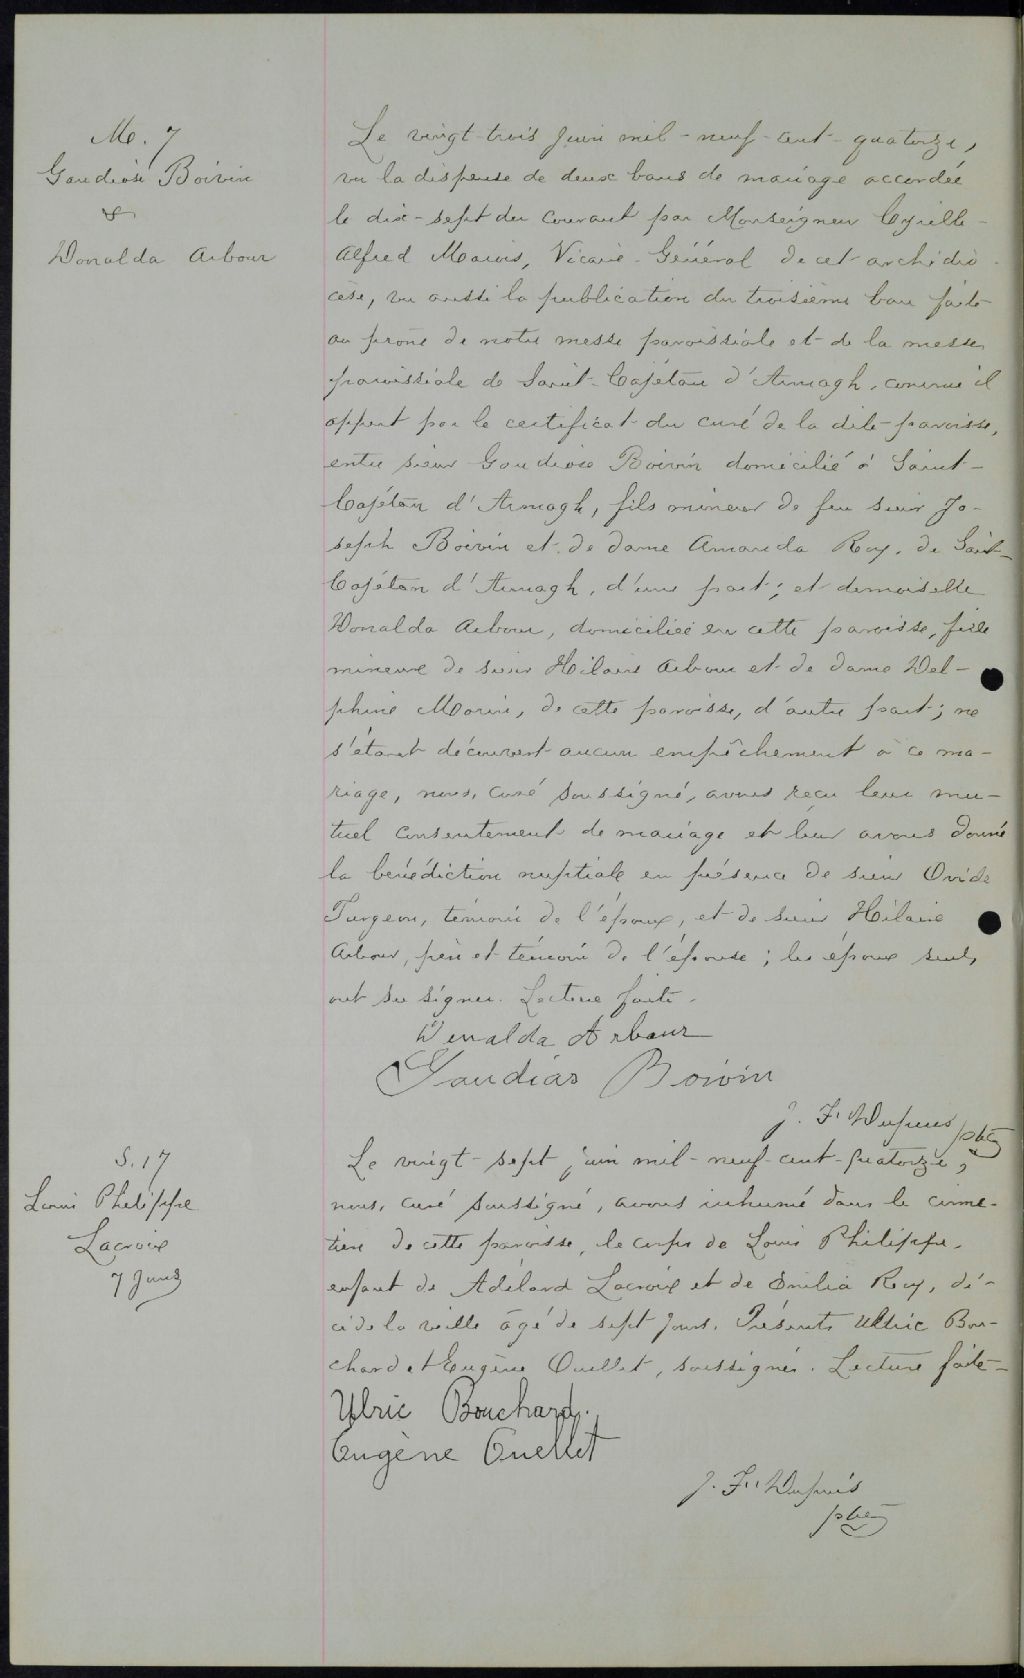 M. 7
Gaudiose Boivin
&
Donalda Arbour
Le vingt-trois juin mil-neuf-cent-quatorze,
vu la dispense de deux bans de mariage accordée
le dix-sept du courant par Monseigneur Cyrille-
Alfred Marois, Vicaire-Général de cet archidio-
cèse, vu aussi la publication du troisième ban faite
au prône de notre messe paroissiale et de la messe
paroissiale de Saint-Cajétan d'Armagh, comme il
appert par le certificat du curé de la dite paroisse,
entre sieur Gaudiose Boivin domicilié à Saint-
Cajétan d'Armagh, fils mineur de feu sieur Jo-
seph Boivin et de dame Amanda Roy, de Saint-
Cajétan d'Armagh, d'une part; et demoiselle
Donalda Arbour, domiciliée en cette paroisse, fille
mineure de sieur Hilaire Arbour et de dame Del-
phine Morin, de cette paroisse, d'autre part; ne
s'étant découvert aucun empêchement à ce ma-
riage, nous, curé soussigné, avons reçu leur mu-
tuel consentement de mariage et leur avons donné
la bénédiction nuptiale en présence de sieur Ovide
Turgeon, témoin de l'époux, et de sieur Hilaire
Arbour, père et témoin de l'épouse; les époux seuls
ont su signer. Lecture faite.
Donalda Arbour
Gaudias Boivin
J. F. Dupuis ptre
S. 17
Louis Philippe
Lacroix
7 jours
Le vingt-sept juin mil-neuf-cent-quatorze,
nous, curé soussigné, avons inhumé dans le cime-
tière de cette paroisse, le corps de Louis Philippe,
enfant de Adélard Lacroix et de Emilia Roy, dé-
cédé la veille âgé de sept jours. Présents Ulric Bou-
chard et Eugène Ouellet, soussignés. Lecture faite-
Ulric Bouchard.
Eugène Ouellet
J. F. Dupuis
ptre